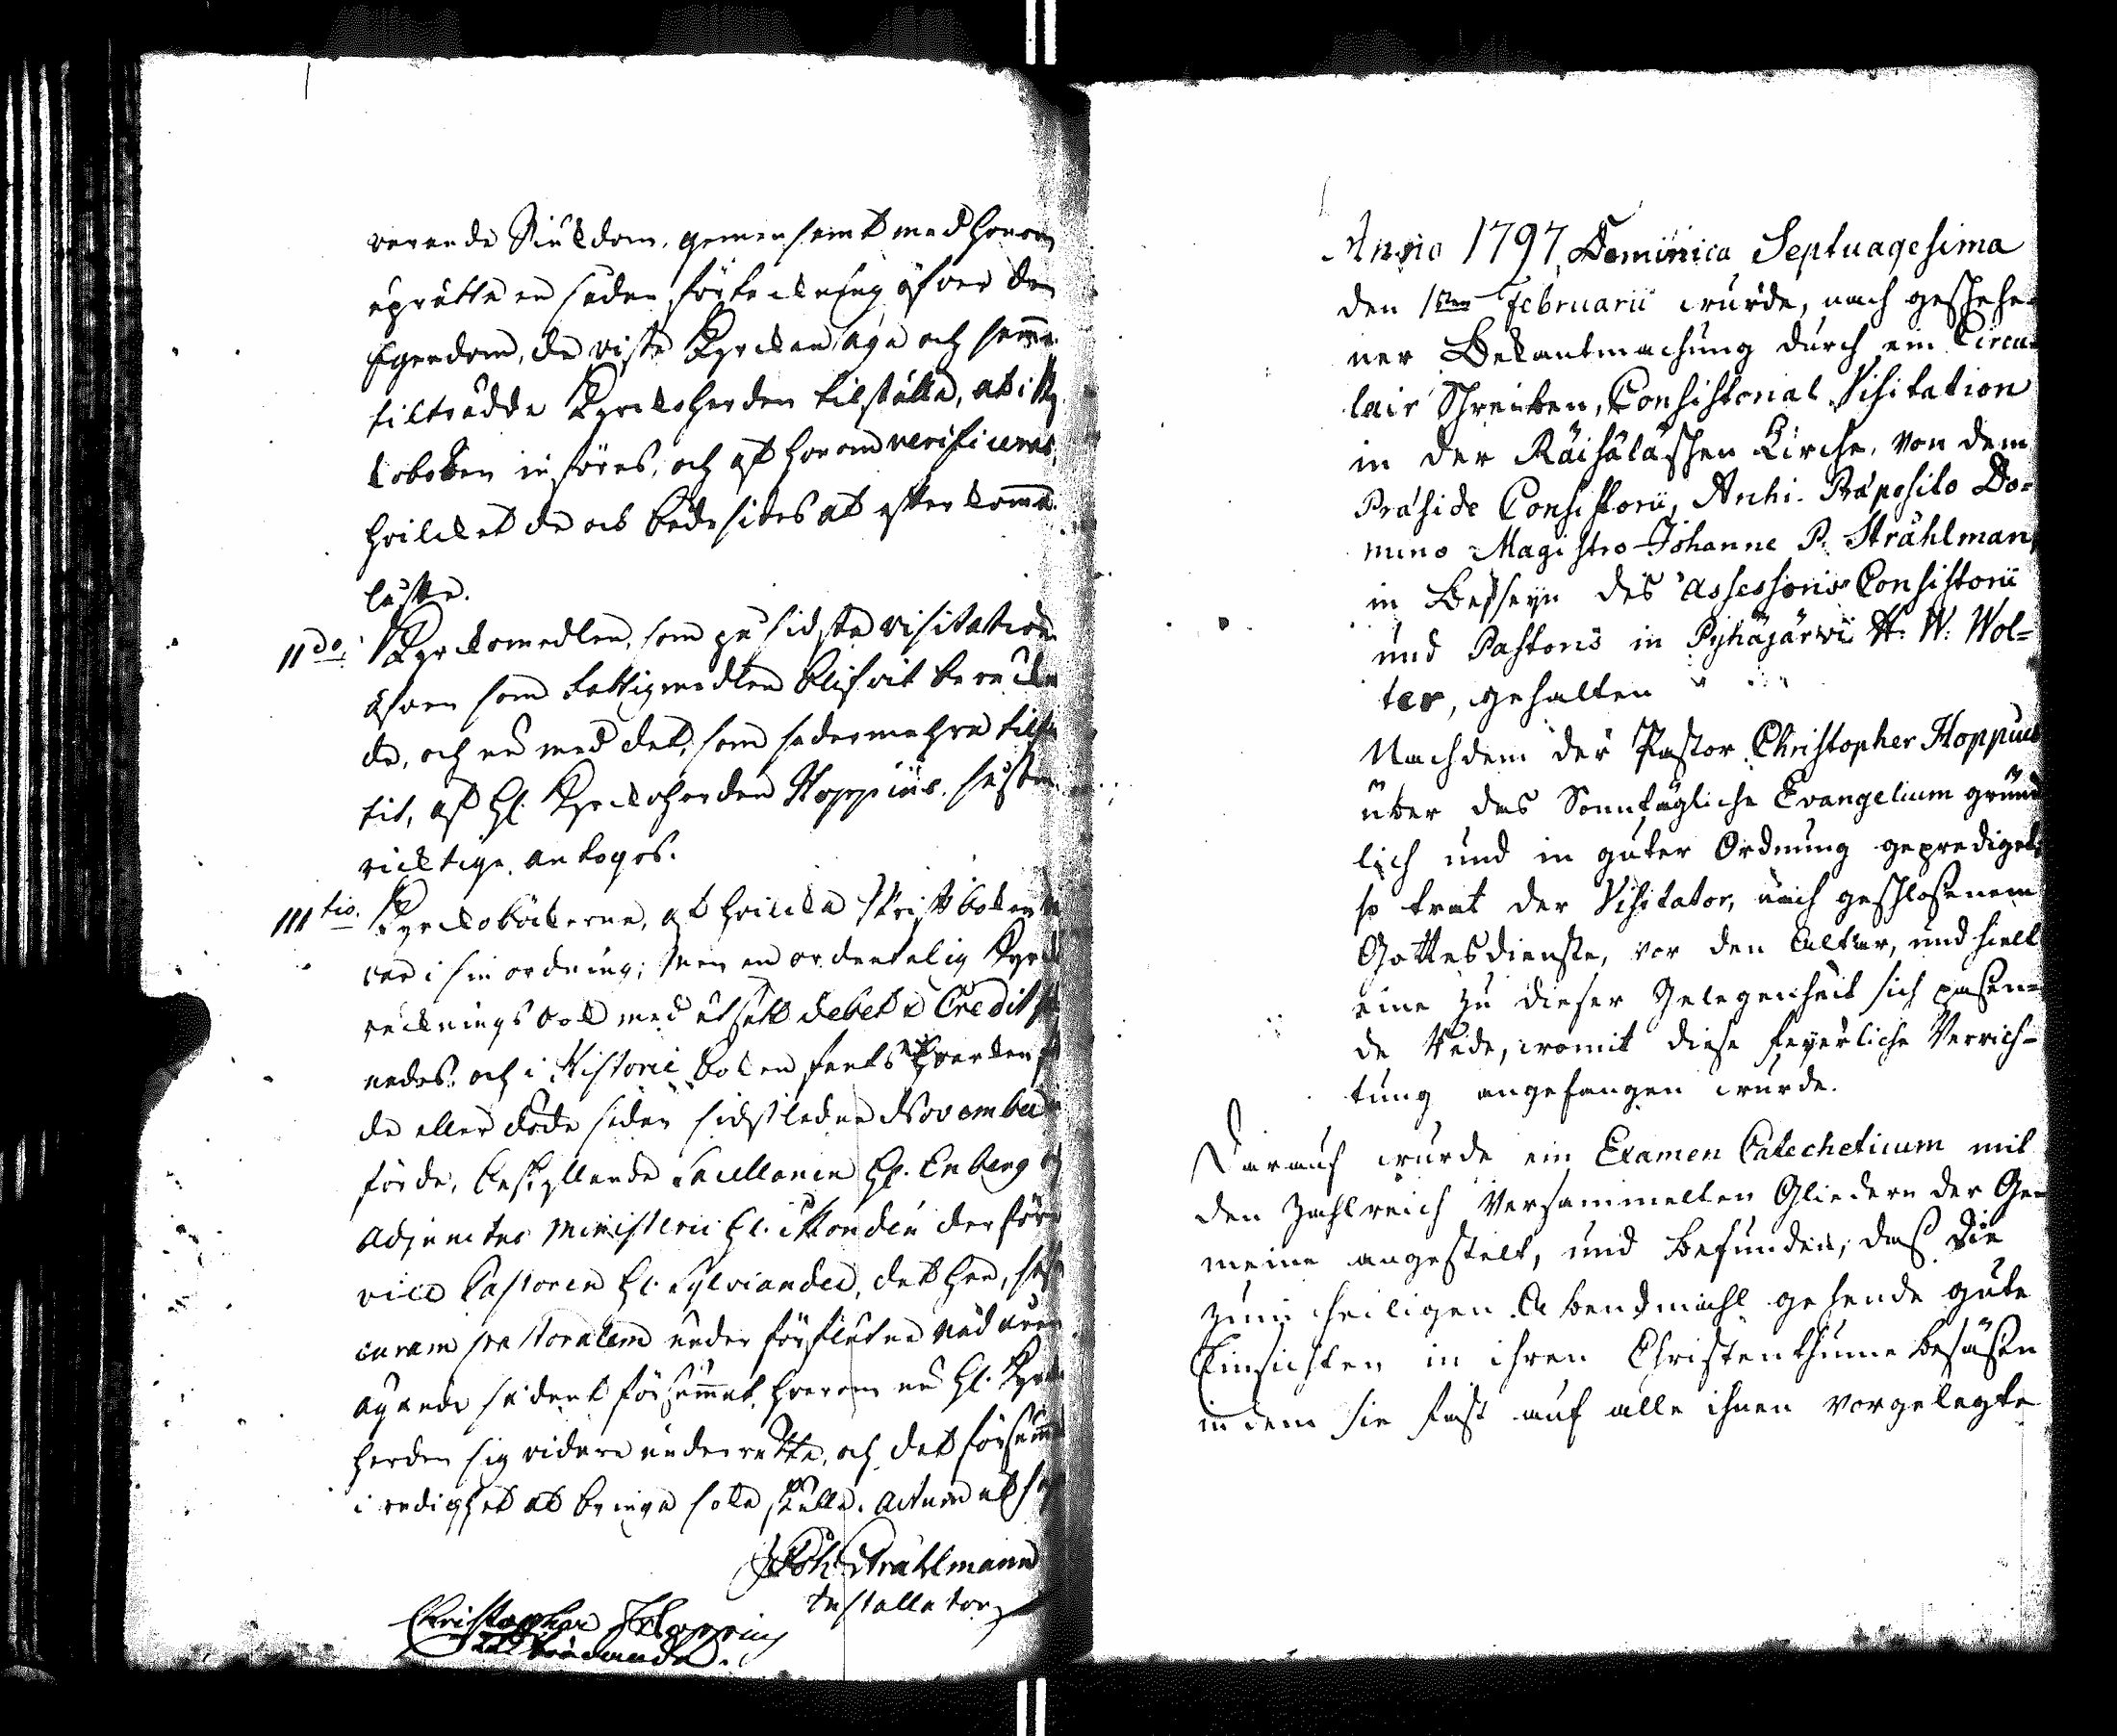 varande Siukdom, gemensamt med honom
uprätta en sådan förtekning öfver den
Egendom, de viste Kyrckan äga och samma
tilträdde Kyrckoherden tilställa, at i Kyr
koboken införas, och af honom verificeras,
hvilcket de ock både sides at efterkomma
låfte.
IIdo. Kyrckomedlen, som på sidsta visitation
äfven som Fattigmedlen blifvit beräkna
de, och nu med det, som sedermehra
tit, af H. Kyrckoherden Hoppius
ricktige antogos.
IIItio. Kyrckobökerne, af hvilcka Skriftboken
var i sin ordning; Men en ordentelig Kyrck
räcknings bok med utsatt debet & Credit
nades, och i Historie boken fants
de eller döde sedan sidstledne November
förde, beskyllande Sacellanen H. Enberg och
Adjunctus Ministerii H. der före
vice Pastoren H. Sylvander, det han,
curam pastoralem under förflutne nådåren
ägande sådant försummat, hvarom nu H. Kyrcko
herden sig vidare underrätta, och det försummade
i redighet at bringa söka skulle. Actum ut
Joh. Strahlmann
Installator
Christopher Hoppius
Tilträdande.
Anno 1797 Dominica Septuagesima
den 1sten Februarii wurde, nach geschehe-
ner Bekantmachung durch ein Circu-
lair Schreiben, Consistorial Visitation
in der Räisäläschen Kirche, von dem
Präside Consistorii, Archi-Præposito Do-
mino Magistro Johanne P. Strahlman,
in Beyseyn des Assessoris Consistorii
und Pastoris in Pyhäjärwi H. W. Wol=
ter, gehalten
Nachdem der Pastor Christopher Hoppius
über das Sonntägliche Evangelium gründ
lich und in guter Ordnung geprediget,
so trat der Visitator, nach geschloßenem
Gottesdienste, vor den Altar, und hielt
eine zu dieser Gelegenheit sich paßen=
de Rede, womit diese feyerliche Verrich-
tung angefangen wurde.
Darauf wurde ein Examen Catecheticum mit
den Zahlreich Versammelten Gliedern der Ge-
meine angestelt, und befunden, daß die
zum heiligen Abendmahl gehende gute
Einsichten in ihren Christenthume besäßen
indem sie fast auf alle ihnen vorgelegte